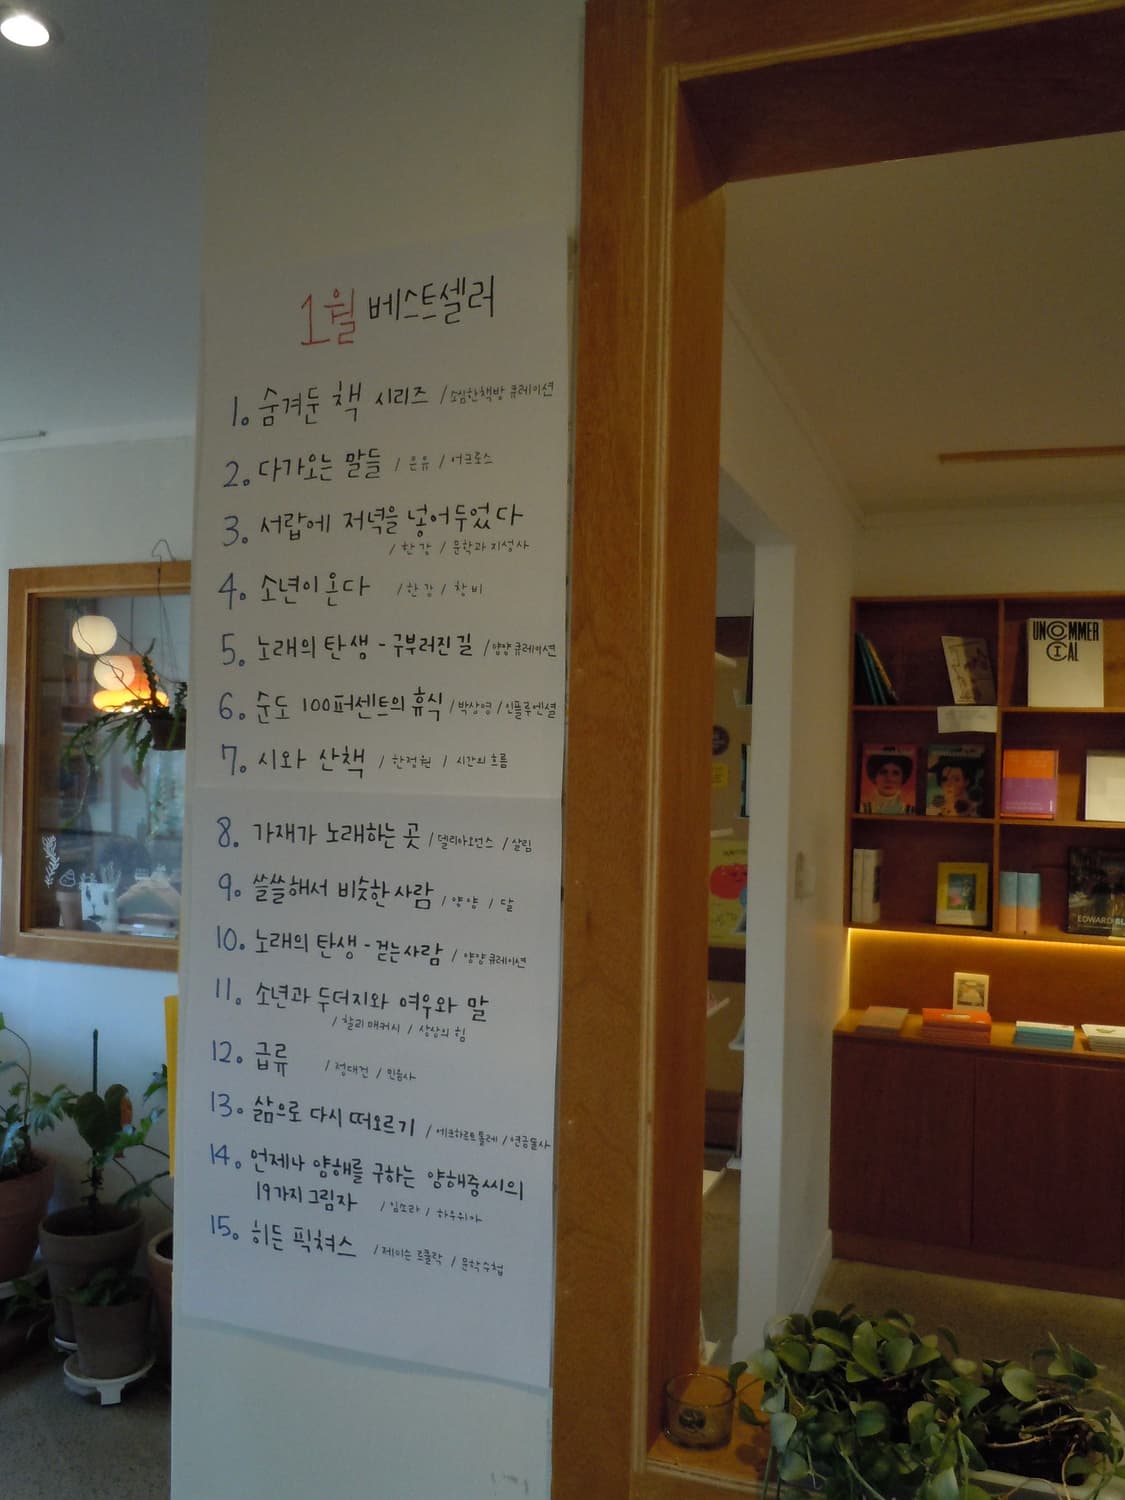 1월 베스트셀러
1. 숨겨둔 책 시리즈 / 소심한책방 큐레이션
2. 다가오는 말들 / 은유 / 어크로스
3. 서랍에 저녁을 넣어두었다
/ 한강 / 문학과지성사
4. 소년이 온다 / 한강 / 창비
5. 노래의 탄생 - 구부러진 길 / 양양 큐레이션
6. 순도 100퍼센트의 휴식 / 박상영 / 인플루엔셜
7. 시와 산책 / 한정원 / 시간의 흐름
8. 가재가 노래하는 곳 / 델리아오언스 / 살림
9. 쓸쓸해서 비슷한 사람 / 양양 / 달
10. 노래의 탄생 - 걷는 사람 / 양양 큐레이션
11. 소년과 두더지와 여우와 말
/ 찰리 매커시 / 상상의 힘
12. 급류 / 정대건 / 민음사
13. 삶으로 다시 떠오르기 / 에크하르트 톨레 / 연금술사
14. 언제나 양해를 구하는 양해중씨의
19가지 그림자 / 임소라 / 하우위아
15. 히든 픽쳐스 / 제이슨 르쿨락 / 문학수첩
UNCOMMER
CIAL
EDWARD